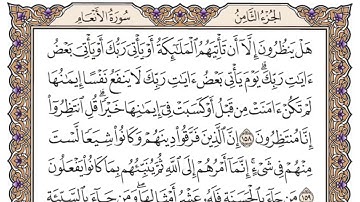 الجزء الثامن سورة الأنعام
هَلْ يَنظُرُونَ إِلَّا أَن تَأْتِيَهُمُ الْمَلَٰٓئِكَةُ أَوْ يَأْتِىَ رَبُّكَ أَوْ يَأْتِىَ بَعْضُ
ءَايَٰتِ رَبِّكَ ۗ يَوْمَ يَأْتِى بَعْضُ ءَايَٰتِ رَبِّكَ لَا يَنفَعُ نَفْسًا إِيمَٰنُهَا
لَمْ تَكُنْ ءَامَنَتْ مِن قَبْلُ أَوْ كَسَبَتْ فِىٓ إِيمَٰنِهَا خَيْرًا ۗ قُلِ انتَظِرُوٓا۟
إِنَّا مُنتَظِرُونَ ١٥٨ إِنَّ الَّذِينَ فَرَّقُوا۟ دِينَهُمْ وَكَانُوا۟ شِيَعًا لَّسْتَ
مِنْهُمْ فِى شَىْءٍ ۚ إِنَّمَآ أَمْرُهُمْ إِلَى اللَّهِ ثُمَّ يُنَبِّئُهُم بِمَا كَانُوا۟ يَفْعَلُونَ
١٥٩ مَن جَآءَ بِالْحَسَنَةِ فَلَهُۥ عَشْرُ أَمْثَالِهَا ۖ وَمَن جَآءَ بِالسَّيِّئَةِ